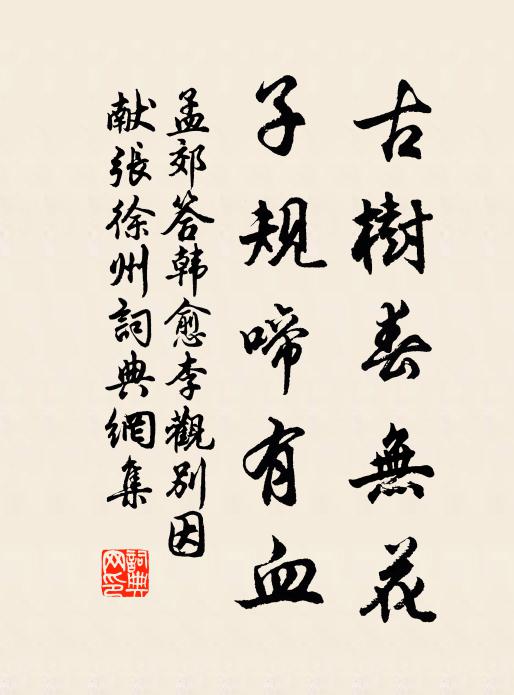 古樹春無花
子規啼有血
孟郊答韓愈李觀別因
献張徐州詞典網集
詞典
网印